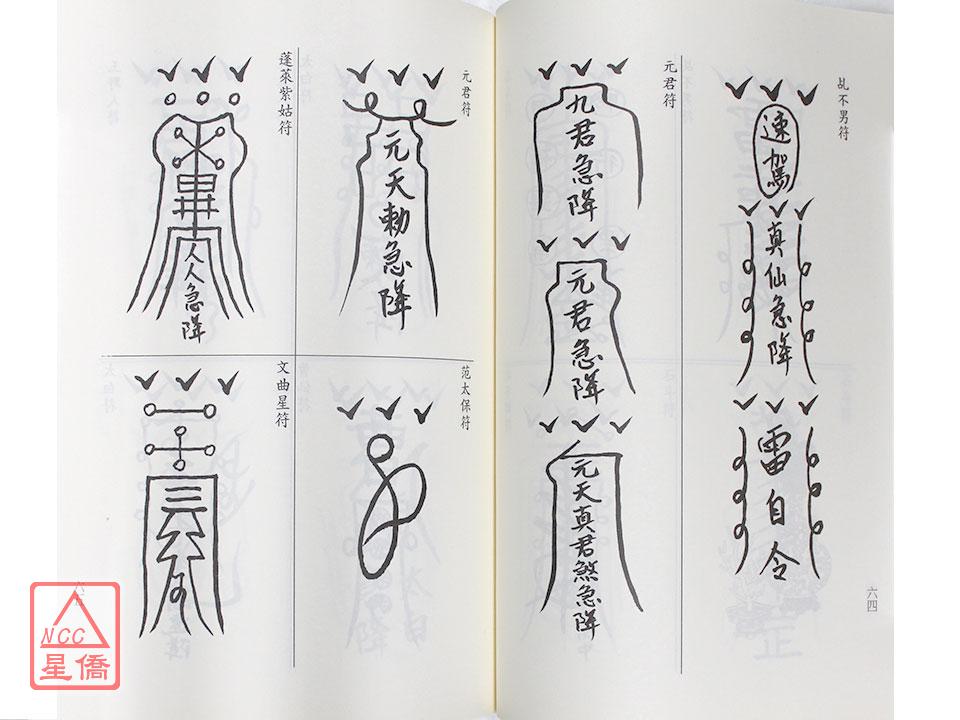 乩不男符
速駕
真仙急降
雷自令
六四
元君符
九君急降
元君急降
元天真君煞急降
元君符
元天勅急降
范太保符
蓬萊紫姑符
人人急降
文曲星符
NCC
星僑